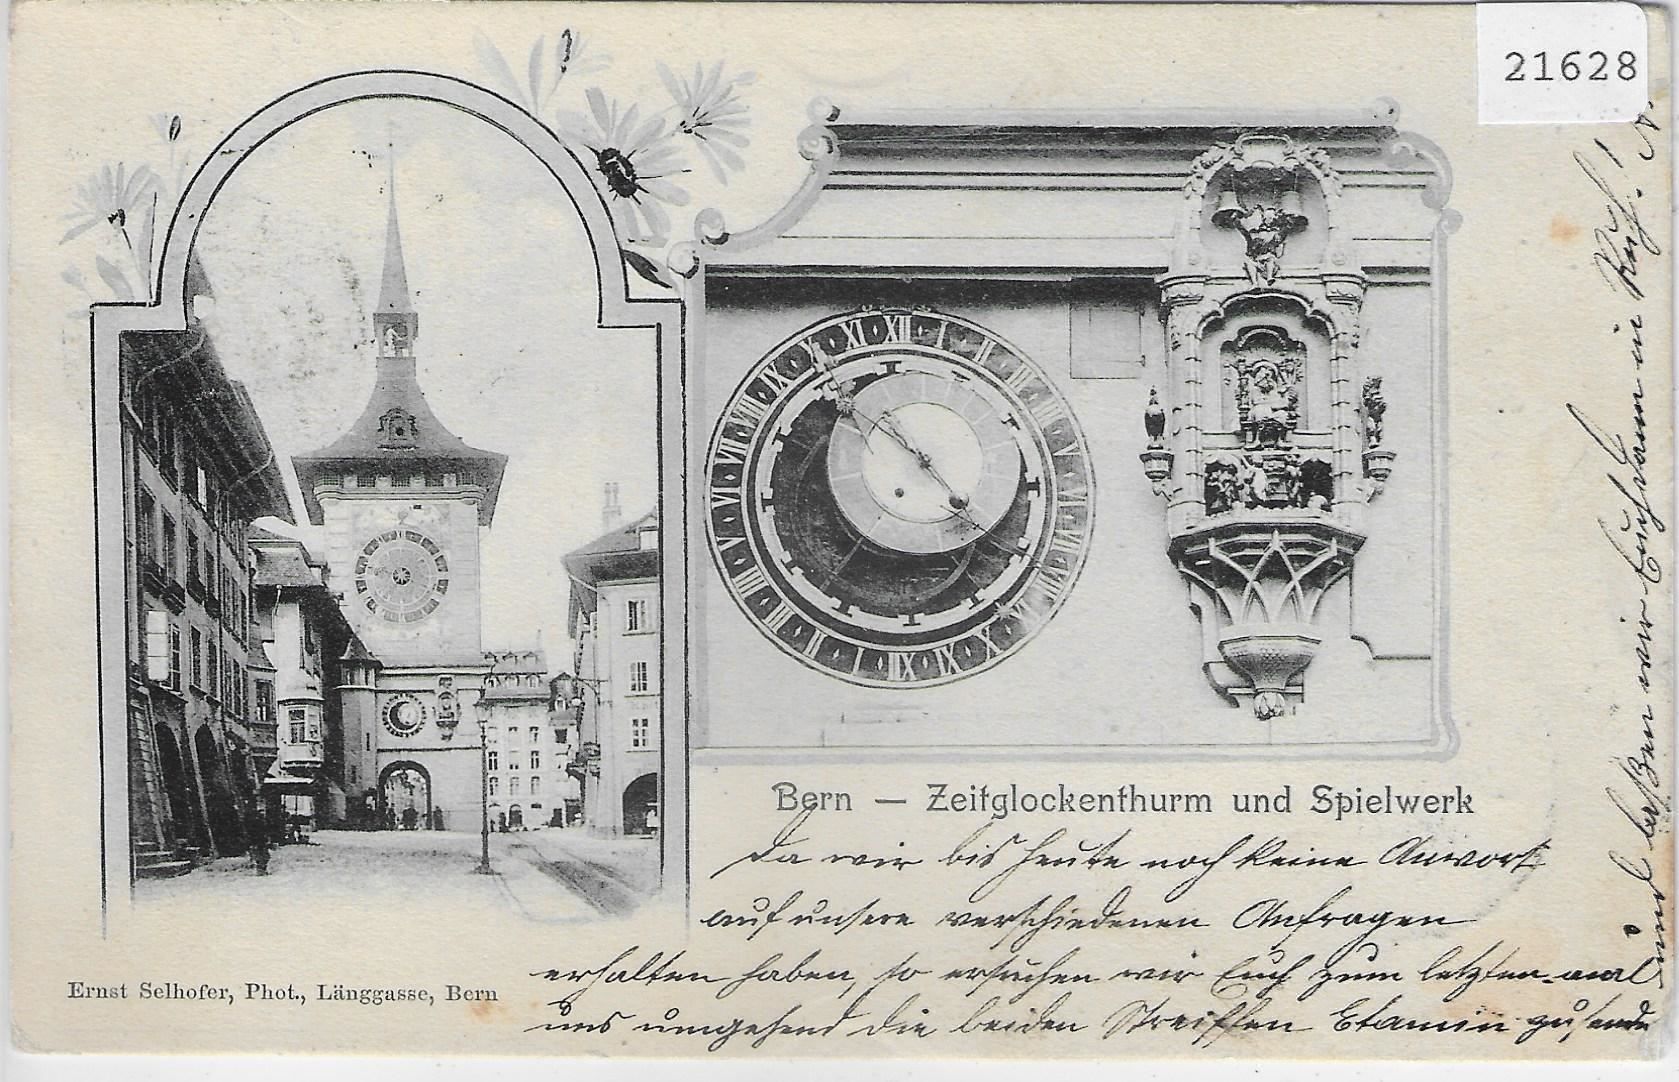 21628
Bern — Zeitglockenthurm und Spielwerk
Da wir bis heute noch keine Antwort
auf unsere verschiedenen Anfragen
erhalten haben, so ersuchen wir Euch zum letzten mal
uns umgehend die beiden Streiffen Etamin zu senden
und lassen wir in Ruh!
Ernst Selhofer, Phot., Länggasse, Bern